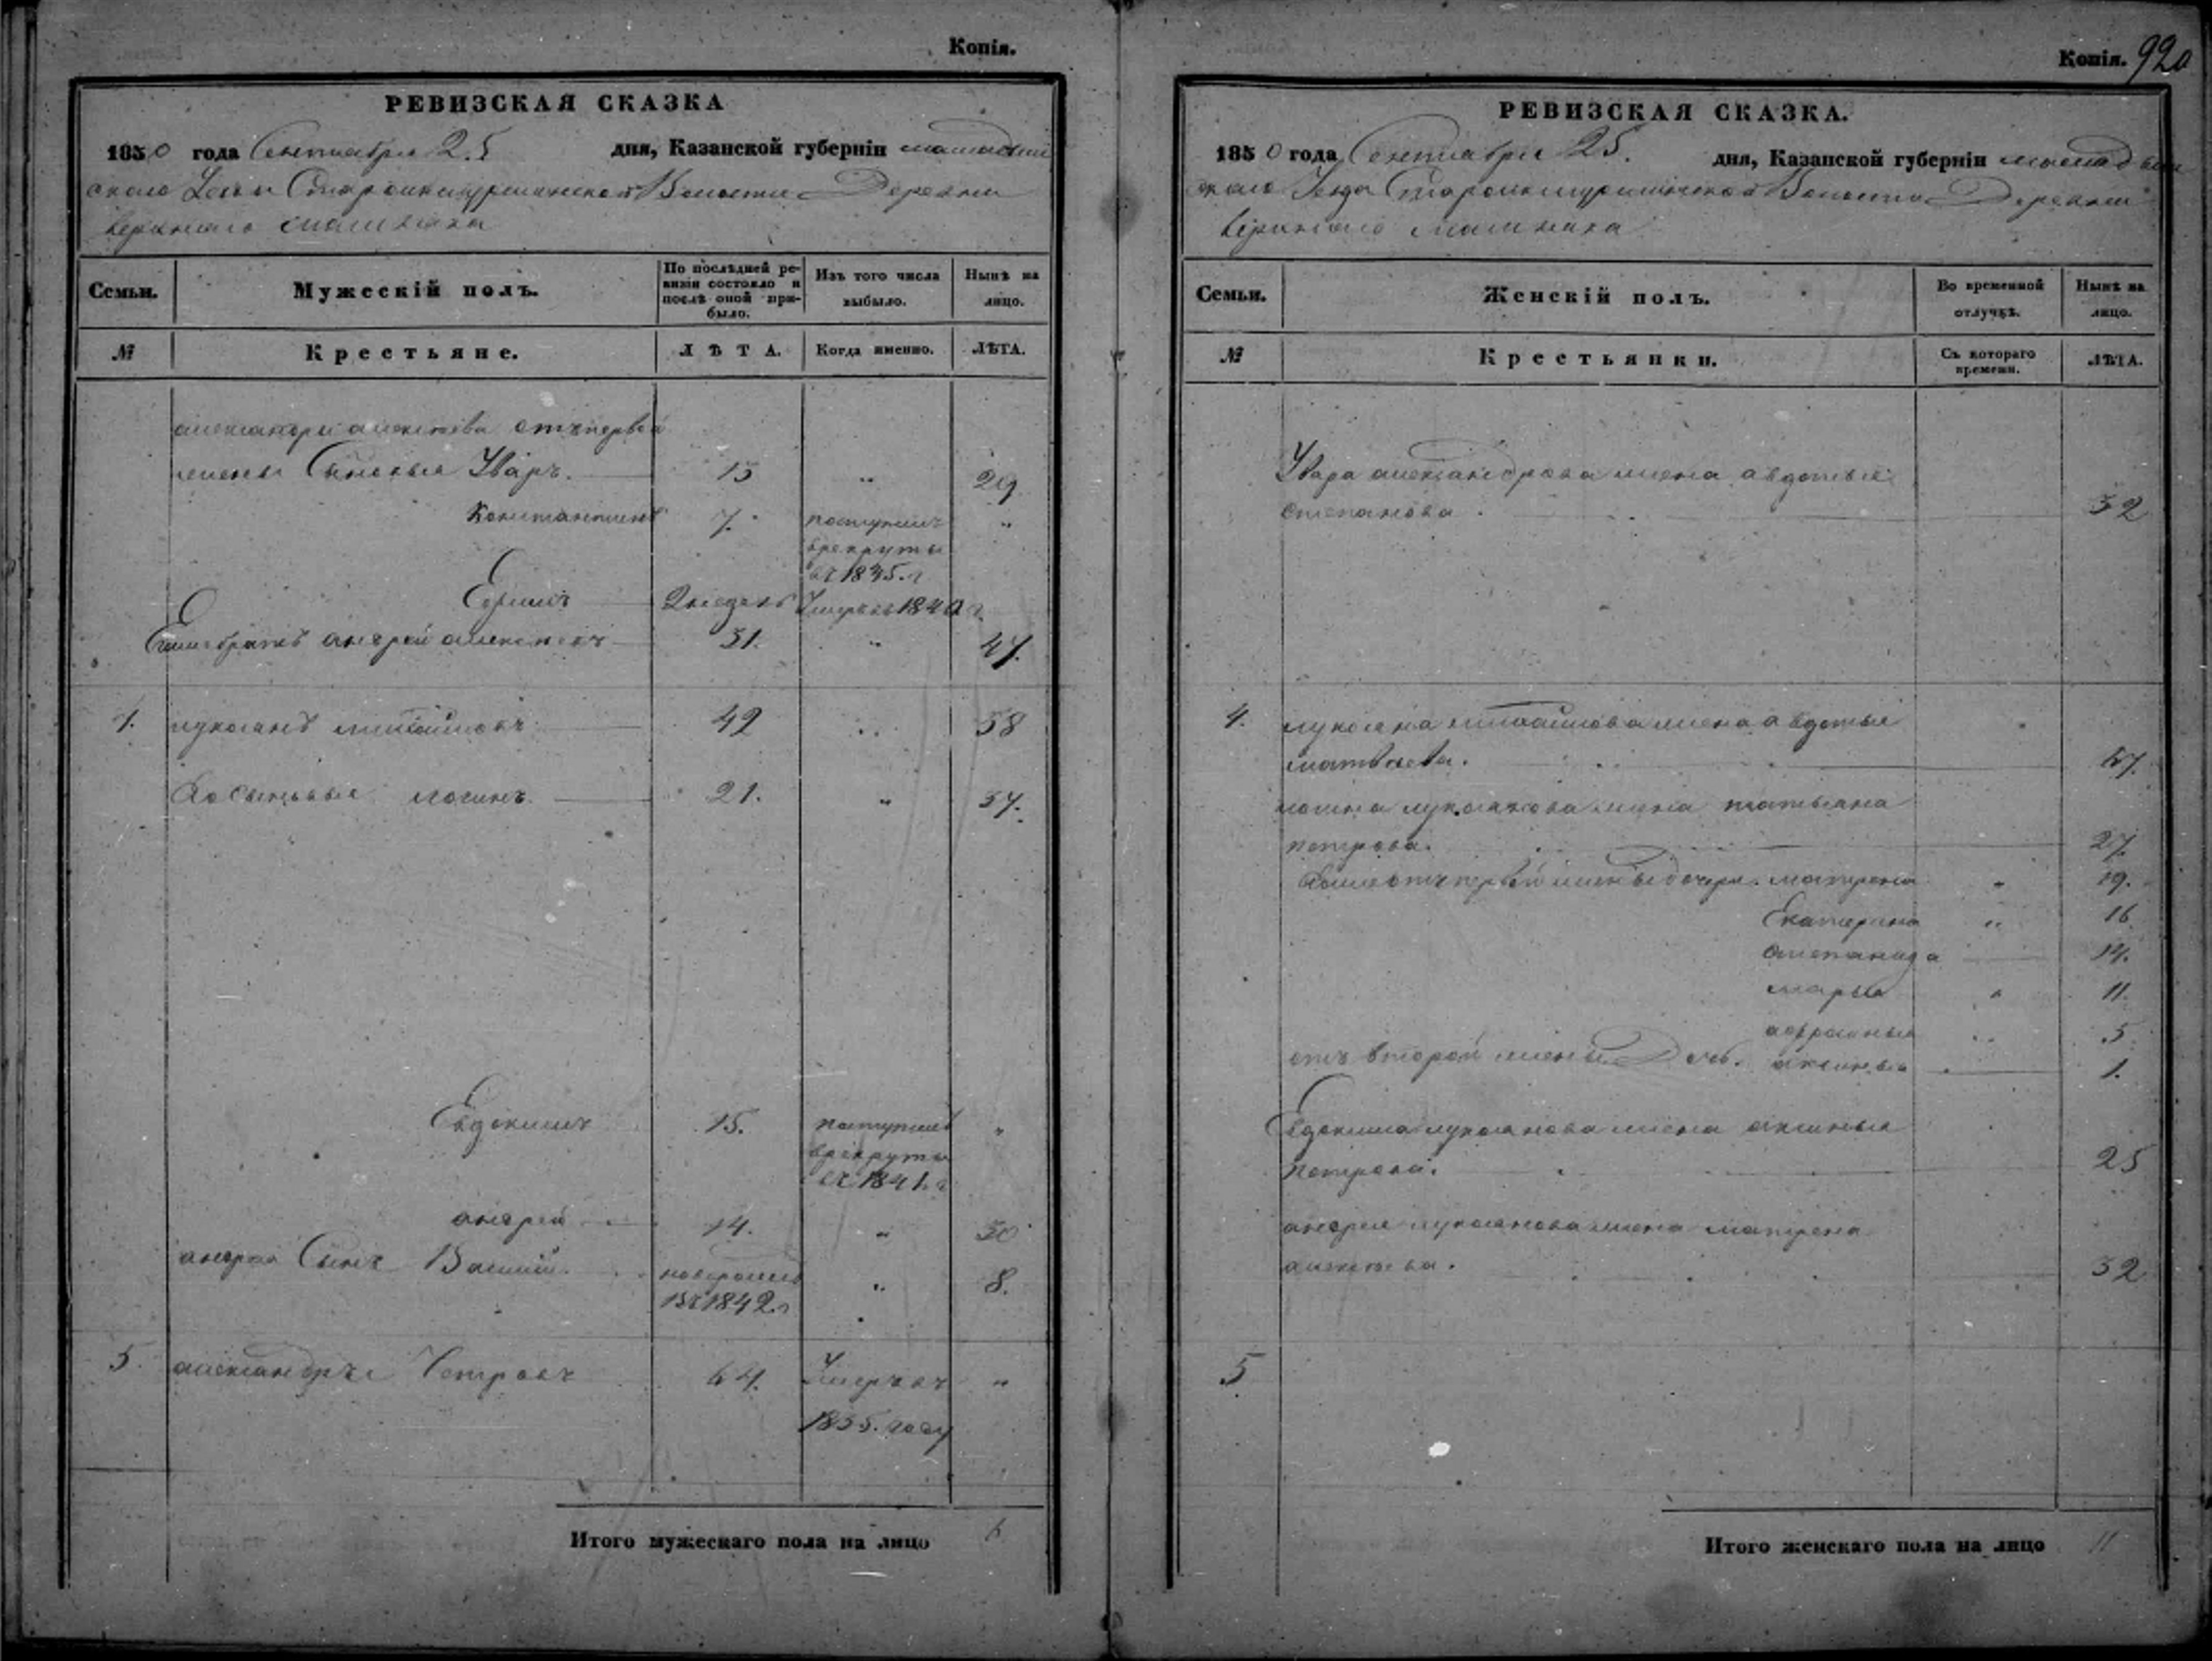 Копія.
РЕВИЗСКАЯ СКАЗКА
1850 года Сентября 25 дня, Казанской губерніи мамадыш
скаго Уезда Волости Деревни
верхняго
Семьи.
Мужескій полъ.
По послѣдней ре-
визіи состояло и
послѣ оной при-
было.
Изъ того числа
выбыло.
Нынѣ на
лицо.
№
Крестьяне.
ЛѢТА.
Когда именно.
ЛѢТА.
александра алексеева отъ первой
жены Сыновья Уваръ. 15 " 29
Константинъ 7. поступилъ "
врекруты
въ 1845. г
2 недель Умеръ въ 1840 г.
Егоже братъ андрей алексеевъ 31. " 47.
лукоянъ михайловъ 42 " 58
Ево Сыновья логинъ 21. " 37.
Евдокимъ 15. поступилъ "
врекруты
въ 1841. г
андрей 14. " 30
андрея Сынъ новорожденъ " 8.
въ 1842. г
5. александръ Петровъ 64. Умеръ въ "
1835. году
Итого мужескаго пола на лицо 6
Копія. 920
РЕВИЗСКАЯ СКАЗКА.
1850 года Сентября 25. дня, Казанской губерніи мамадыш
скаго Уезда Волости Деревни
верхняго
Семьи.
Женскій полъ.
Во временной
отлучкѣ.
Нынѣ на
лицо.
№
Крестьянки.
Съ котораго
времени.
ЛѢТА.
Увара александрова жена авдотья
степанова. 32
4. лукояна михайлова жена авдотья
матвеева.
логина лукоянова жена татьяна
петрова. 27.
Егоже отъ первой жены дочери. матрена " 19.
Екатерина " 16
степанида 14.
марья " 11.
" 5
отъ второй жены Дочь. аксинья 1.
Евдокима лукоянова жена аксинья
петрова. 25
андрея лукоянова жена матрена
алексеева. 32
5
Итого женскаго пола на лицо 11